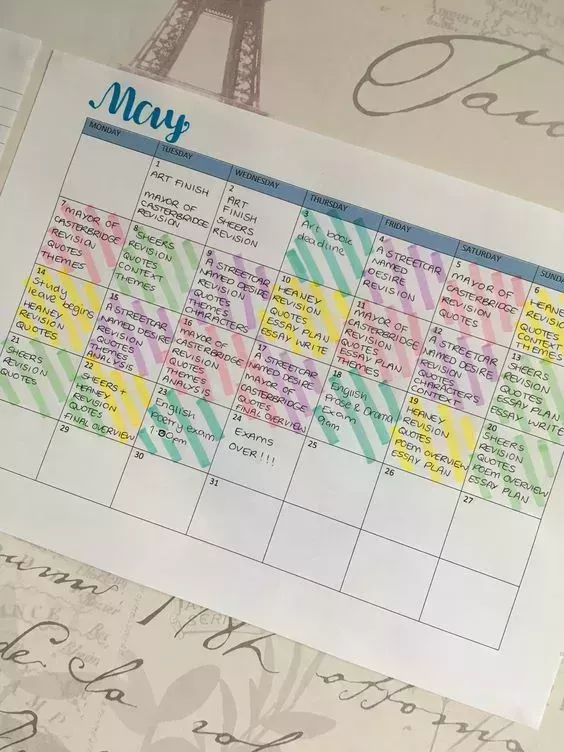 May
MONDAY
TUESDAY
WEDNESDAY
THURSDAY
FRIDAY
SATURDAY
SUND
1
ART FINISH
MAYOR OF
CASTERBRIDGE
REVISION
2
ART
FINISH
SHEERS
REVISION
3
Art book
deadline
4
A STREETCAR
NAMED
DESIRE
REVISION
5
MAYOR OF
CASTERBRIDGE
REVISION
QUOTES
6
HEANE
REVISION
QUOTES
CONTE
THEMES
7
MAYOR OF
CASTERBRIDGE
REVISION
QUOTES
THEMES
8
SHEERS
REVISION
QUOTES
CONTEXT
THEMES
9
A STREETCAR
NAMED DESIRE
REVISION
QUOTES
THEMES
CHARACTERS
10
HEANEY
REVISION
QUOTES
ESSAY PLAN
ESSAY WRITE
11
MAYOR OF
CASTERBRIDGE
REVISION
QUOTES
ESSAY PLAN
THEMES
12
A STREETCAR
NAMED DESIRE
REVISION
QUOTES
CHARACTERS
CONTEXT
13
SHEERS
REVISION
QUOTES
ESSAY PLAN
ESSAY WRITE
14
Study
leave begins
HEANEY
REVISION
QUOTES
15
A STREETCAR
NAMED DESIRE
REVISION
QUOTES
THEMES
ANALYSIS
16
MAYOR OF
CASTERBRIDGE
REVISION
QUOTES
THEMES
ANALYSIS
17
A STREETCAR
NAMED DESIRE
MAYOR OF
CASTERBRIDGE
QUOTES
FINAL OVERVIEW
18
English
Prose & Drama
Exam
9am
19
HEANEY
REVISION
QUOTES
POEM OVERVIEW
ESSAY PLAN
20
SHEERS
REVISION
QUOTES
POEM OVERVIEW
ESSAY PLAN
21
SHEERS
REVISION
QUOTES
22
SHEERS +
HEANEY
REVISION
QUOTES
FINAL OVERVIEW
23
English
Poetry exam
1:00pm
24
Exams
OVER!!!
25
26
27
29
30
31